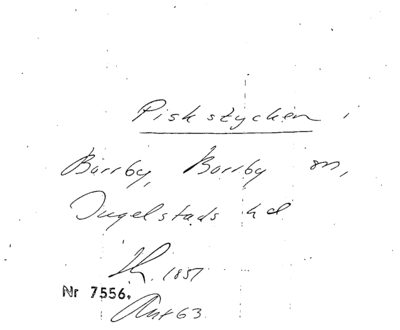 Piskstycken i
Borrby, Borrby sn,
Ingelstads hd
1857
Nr 7556.